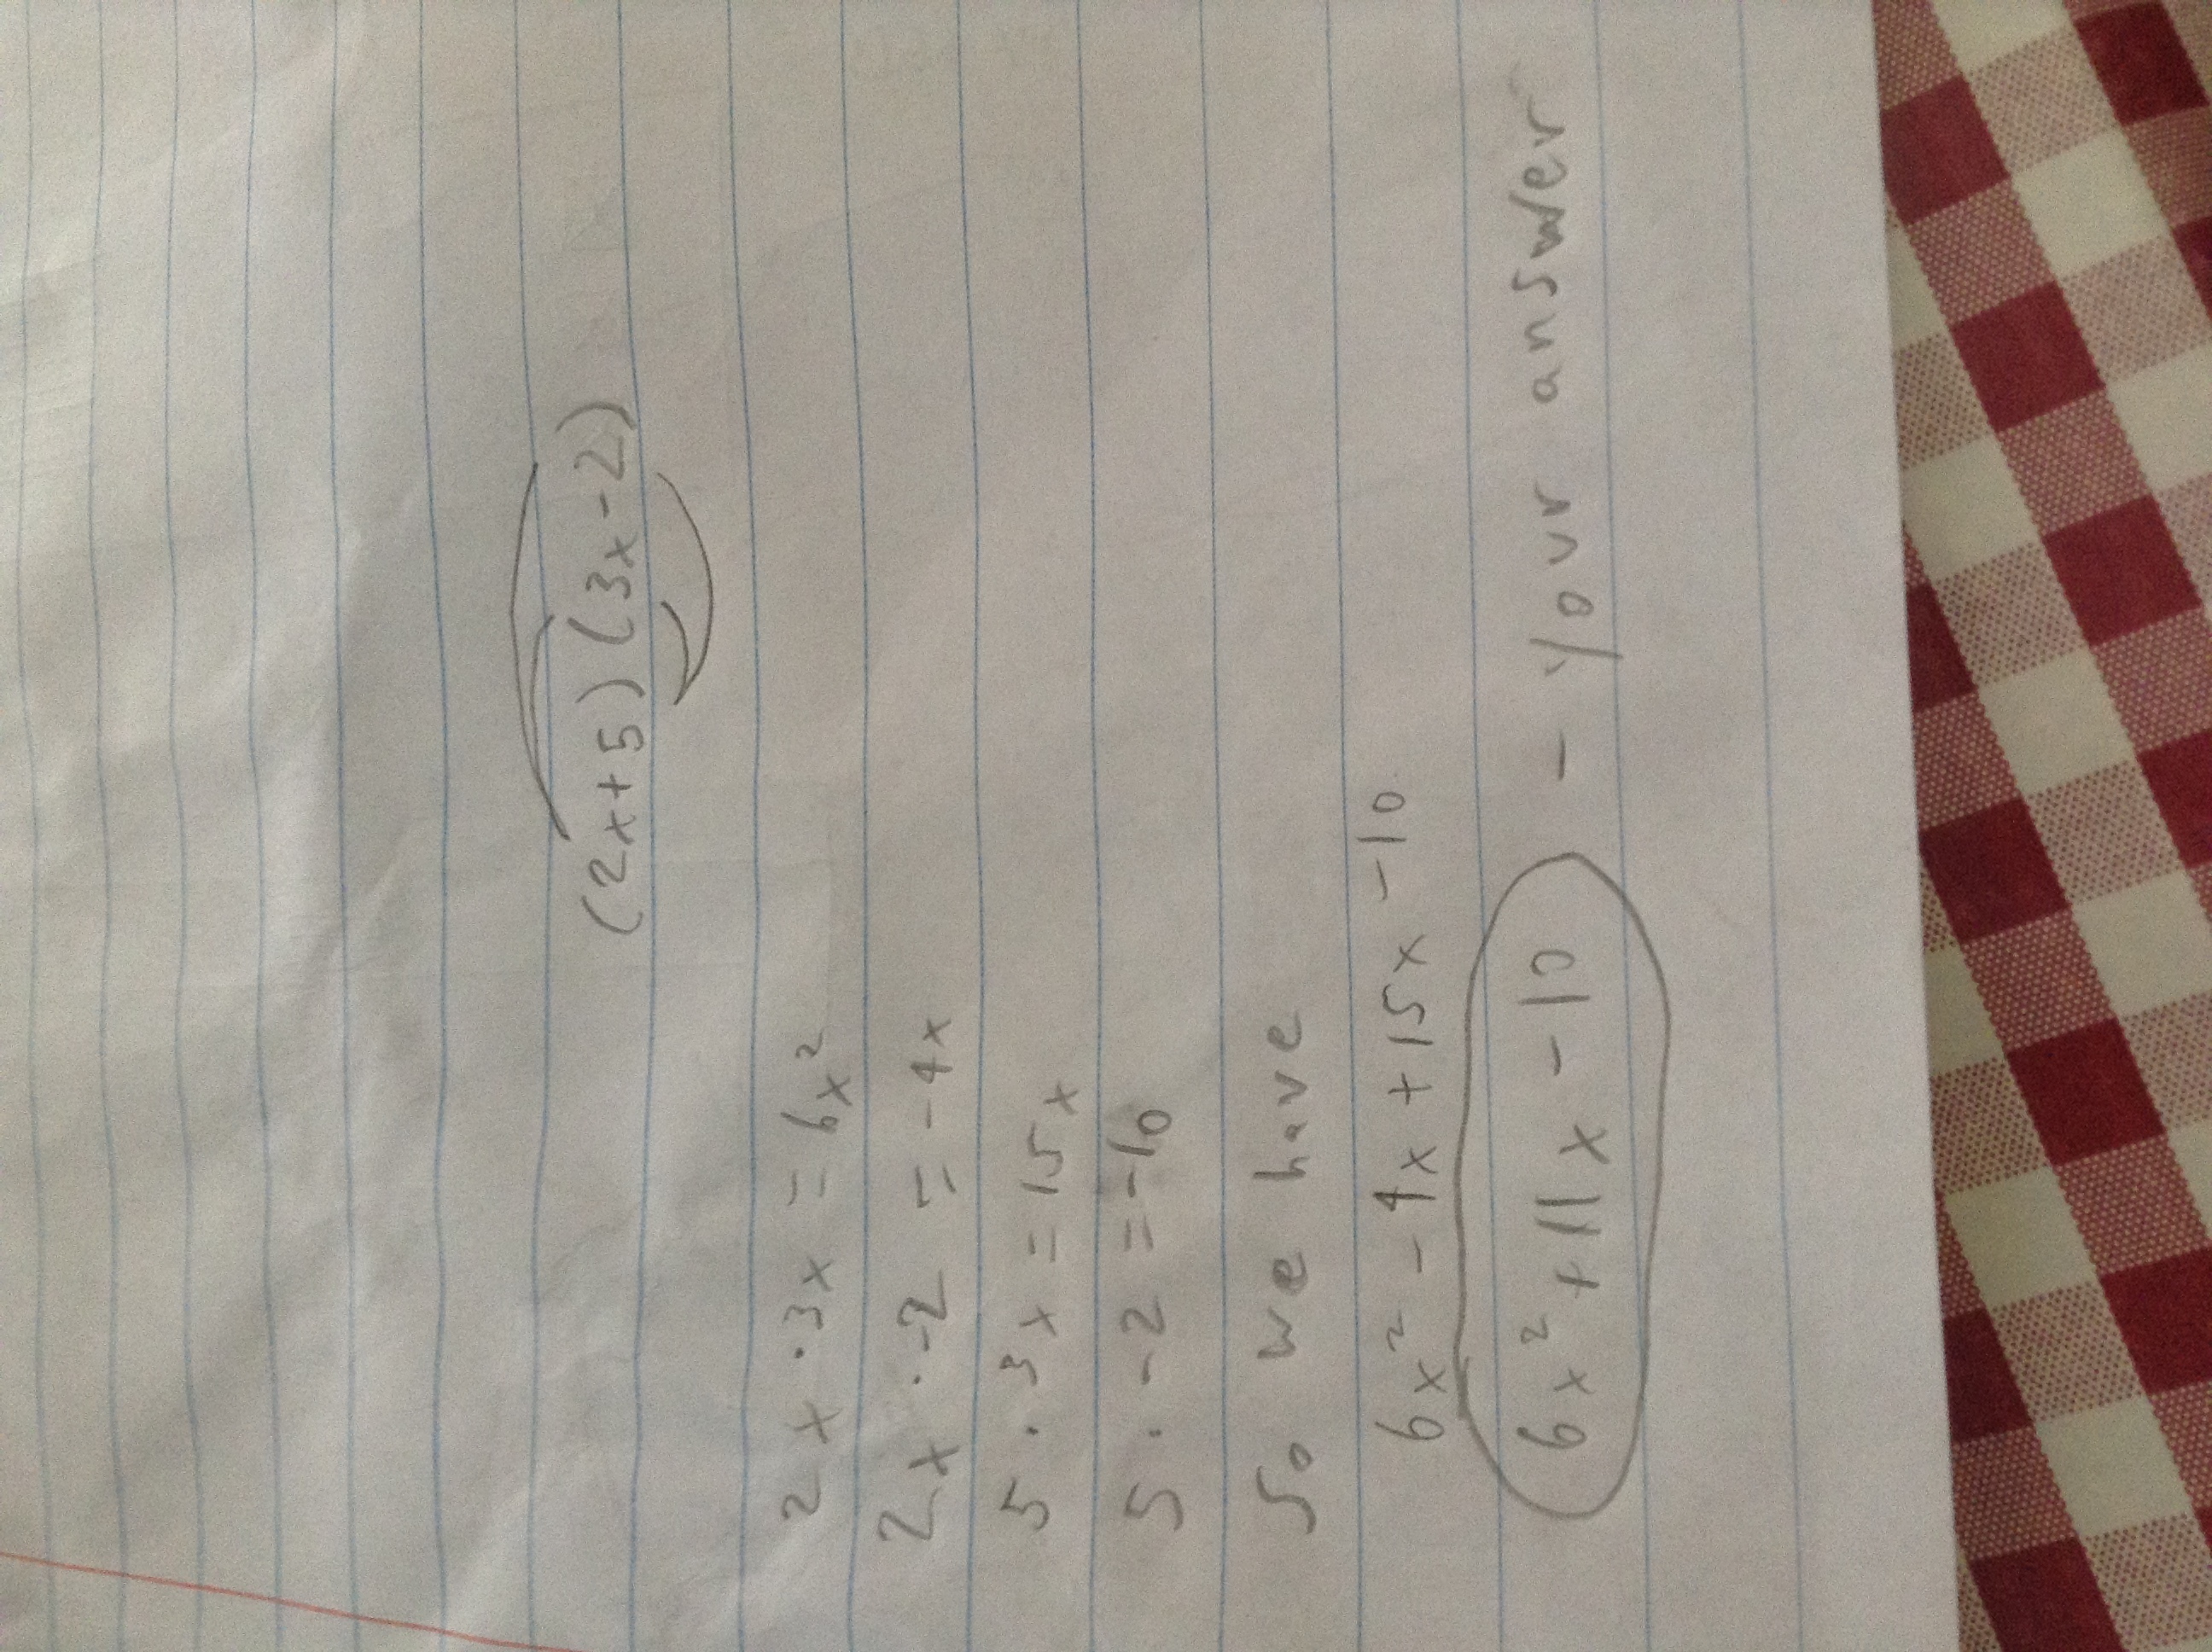 (2x+5)(3x-2)
2x·3x=6x²
2x·-2=-4x
5·3x=15x
5·-2=-10
So we have
6x²-4x+15x-10
6x²+11x-10 - your answer